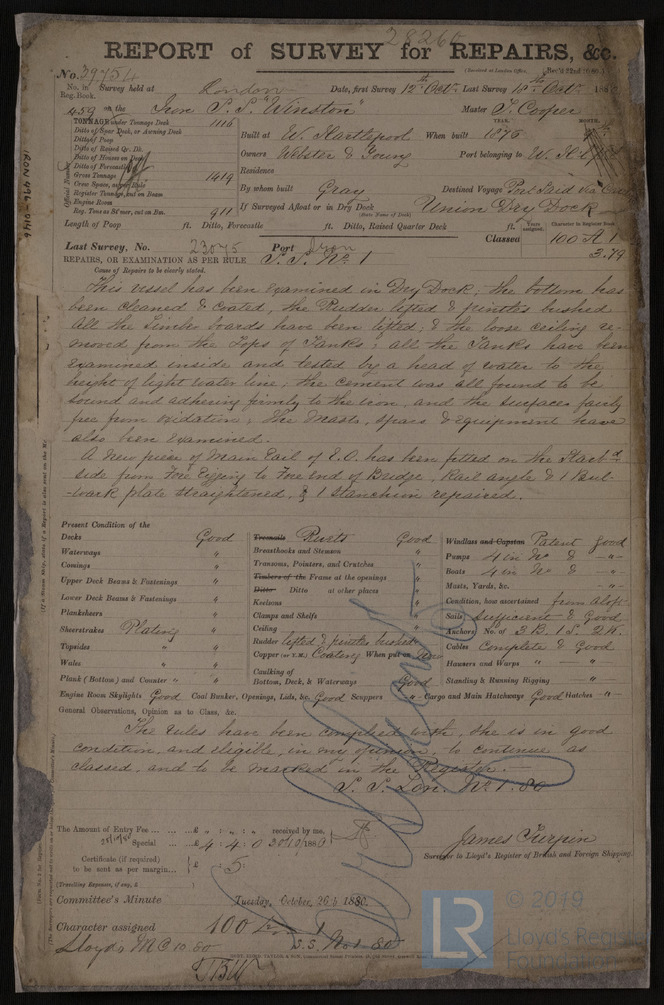 28260
REPORT of SURVEY for REPAIRS, &c.
No. 39754
(Received at London Office, Rec'd 22nd 10.80.)
No. in Reg. Book. Survey held at London Date, first Survey 12th Octr. Last Survey 18th Octr. 1880
459 on the Iron S.S. "Winston" Master T. Cooper
TONNAGE under Tonnage Deck 1116
Ditto of Spar Deck, or Awning Deck
Ditto of Poop
Ditto of Raised Qr. Dk.
Ditto of Houses on Deck
Ditto of Forecastle
Gross Tonnage 1419
Crew Space, as per Rule
Register Tonnage, cut on Beam
Engine Room
Reg. Tons as St'mer, cut on Bm. 911
Official Number
YEAR. MONTH.
Built at W. Hartlepool When built 1875
Owners Webster & Young Port belonging to W. H'l'pool
Residence
By whom built Gray Destined Voyage Port Said via
If Surveyed Afloat or in Dry Dock Union Dry Dock
(State Name of Dock)
Length of Poop ft. Ditto, Forecastle ft. Ditto, Raised Quarter Deck ft.
Years assigned. Character in Register Book.
Last Survey, No. 23075 Port Classed 100 A 1
3.79
REPAIRS, OR EXAMINATION AS PER RULE S.S. No. 1
Cause of Repairs to be clearly stated.
This vessel has been examined in Dry Dock, the bottom has
been cleaned & coated, the Rudder lifted & pintles bushed
All the limber boards have been lifted, & the loose ceiling re-
moved from the Tops of Tanks: all the Tanks have been
examined inside and tested by a head of water to the
height of light water line; the cement was all found to be
sound and adhering firmly to the iron, and the surfaces fairly
free from oxidation; the Masts, spars & equipment have
also been examined.
A New piece of Main Rail of E.O. has been fitted on the Starbd
side from Fore Rigging to Fore end of Bridge, Rail angle & 1 Bul-
-wark plate straightened, & 1 stanchion repaired.
Present Condition of the
Decks Good
Waterways "
Comings "
Upper Deck Beams & Fastenings "
Lower Deck Beams & Fastenings "
Planksheers "
Sheerstrakes Plating "
Topsides " "
Wales " "
Plank (Bottom) and Counter " "
Treenails Rivets Good
Breasthooks and Stemson "
Transoms, Pointers, and Crutches "
Timbers of the Frame at the openings "
Ditto Ditto at other places "
Keelsons
Clamps and Shelfs
Ceiling
Rudder lifted & pintles bushed
Copper (or Y.M.) Coating When put on Now
Caulking of
Bottom, Deck, & Waterways Good
Windlass and Capstan Patent Good
Pumps 4 in No. & -"-
Boats 4 in No. & -"-
Masts, Yards, &c. -"-
Condition, how ascertained from aloft
Sails Sufficient & Good
Anchors No. of 3 B. 1 S. 2 K.
Cables Complete & Good
Hawsers and Warps " -"-
Standing & Running Rigging -"-
Engine Room Skylights Good Coal Bunker, Openings, Lids, &c. Good Scuppers " Cargo and Main Hatchways Good Hatches -"-
General Observations, Opinion as to Class, &c.
The rules have been complied with, she is in good
condition, and eligible, in my opinion, to continue as
classed, and to be marked in the Register.
S.S. Lon. No. 1. 80
The Amount of Entry Fee £ : : received by me,
Special £ 4 : 4 : 0 30/10/1880
Certificate (if required) £ : 5 :
to be sent as per margin
(Travelling Expenses, if any, £ )
James Turpin
Surveyor to Lloyd's Register of British and Foreign Shipping.
Committee's Minute Tuesday, October, 26th 1880.
Character assigned 100 A 1
S.S. No. 1 80
Lloyds MC 10.80
IRON 496 - 0416
LR
© 2019
Lloyd's Register
Foundation